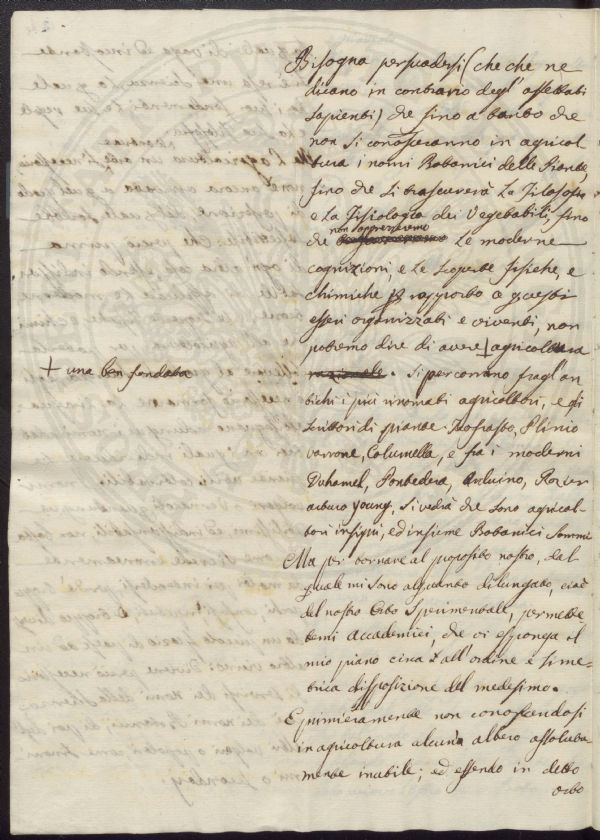 Bisogna persuadersi (che che ne
dicano in contrario degl' affettati
sapienti) che fino a tanto che
non si conosceranno in agricol
tura i nomi Botanici delle Piante,
fino che si trascurerà la Filosofia
e la Fisiologia dei Vegetabili, fino
non apprezzeremo
che le moderne
cognizioni, e le scoperte fisiche, e
chimiche p rapporto a questi
esseri organizzati e viventi, non
potremo dire di avere + agricoltura
+ una ben fondata
razionale. Si percorrano fragl'an
tichi i più rinomati agricoltori, e gli
scrittori di piante Teofrasto, Plinio
Varrone, Columella, e fra i moderni
Duhamel, Pontedera, Arduino, Rozier
arturo young, si vedrà che sono agricol
tori insigni, ed insieme Botanici sommi
Ma per tornare al proposito nostro, dal
quale mi sono alquanto dilungato, cioè
del nostro Orto Sperimentale, permette
temi Accademici, che vi esponga il
mio piano circa all'ordine e sime-
trica disposizione del medesimo.
E primieramente non conoscendosi
in agricoltura alcun albero assoluta-
mente inutile; ed essendo in detto
orto